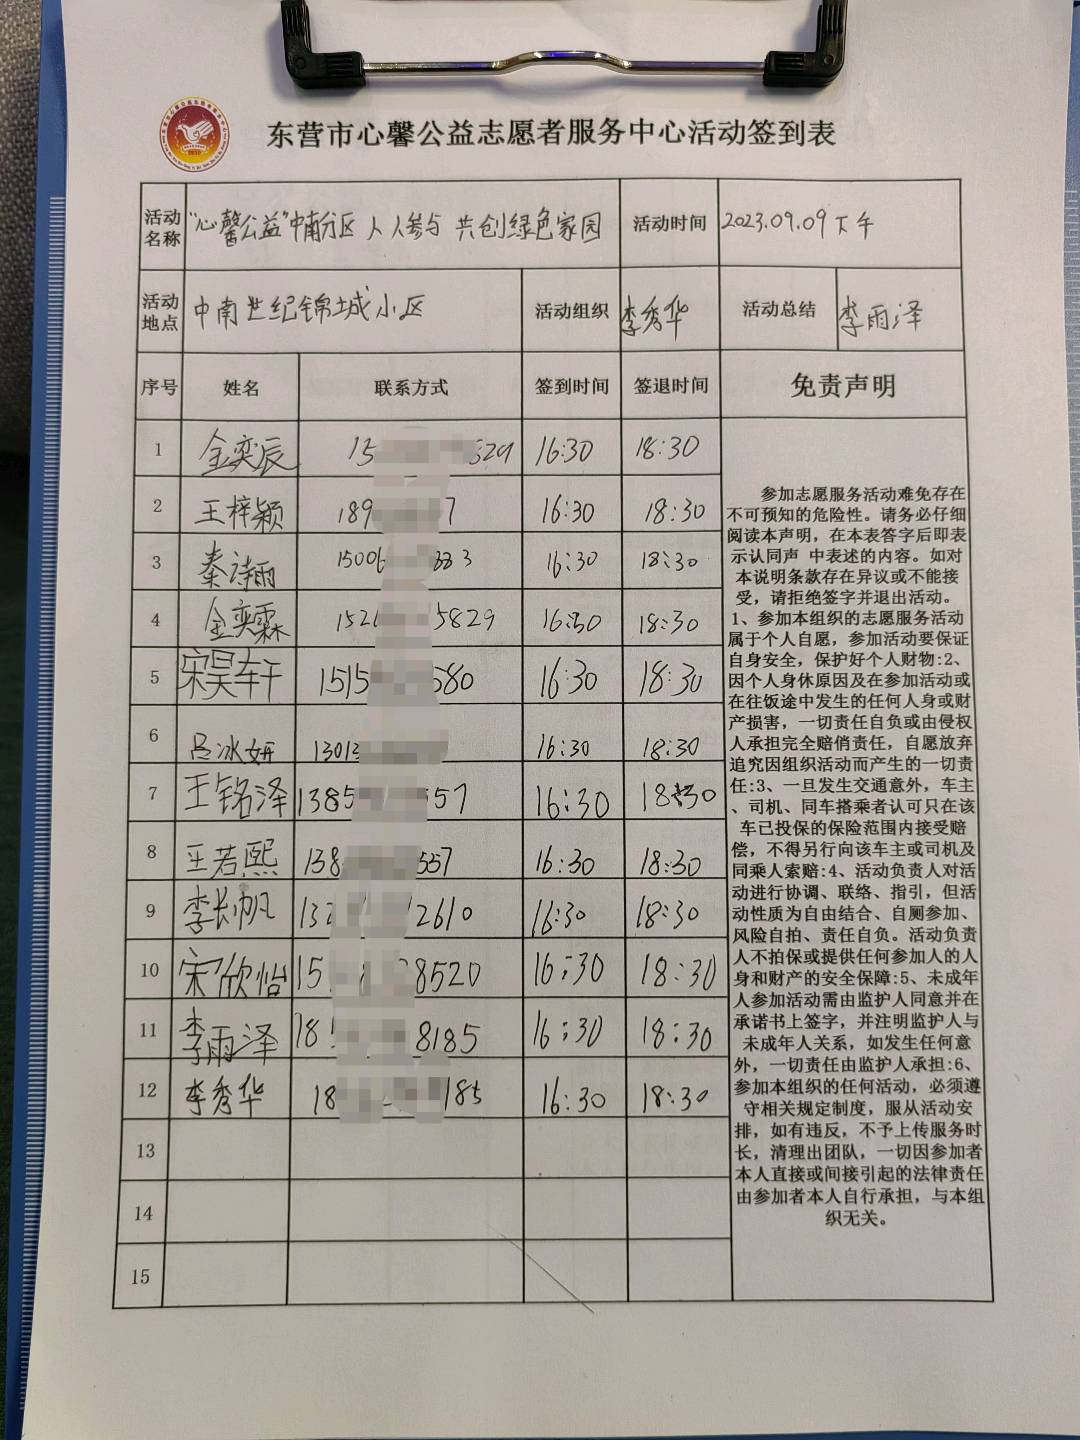 东营市心馨公益志愿者服务中心活动签到表
活动名称 “心馨公益”中南分区 人人参与 共创绿色家园 活动时间 2023.09.09下午
活动地点 中南世纪锦城小区 活动组织 李秀华 活动总结 李雨泽
序号 姓名 联系方式 签到时间 签退时间 免责声明
1 金奕辰 15 529 16:30 18:30
2 王梓颖 189 7 16:30 18:30
3 秦诗雨 15006 333 16:30 18:30
4 金奕霖 152 5829 16:30 18:30
5 宋昊轩 1515 580 16:30 18:30
6 吕冰妍 13013 16:30 18:30
7 王铭泽 1385 557 16:30 18:30
8 王若熙 138 557 16:30 18:30
9 李长帆 132 2610 16:30 18:30
10 宋欣怡 15 8520 16:30 18:30
11 李雨泽 18 8185 16:30 18:30
12 李秀华 18 185 16:30 18:30
13
14
15
参加志愿服务活动难免存在
不可预知的危险性。请务必仔细
阅读本声明，在本表答字后即表
示认同声 中表述的内容。如对
本说明条款存在异议或不能接
受，请拒绝签字并退出活动。
1、参加本组织的志愿服务活动
属于个人自愿，参加活动要保证
自身安全，保护好个人财物:2、
因个人身休原因及在参加活动或
在往饭途中发生的任何人身或财
产损害，一切责任自负或由侵权
人承担完全赔俏责任，自愿放弃
追究因组织活动而产生的一切责
任:3、一旦发生交通意外，车主
、司机、同车搭乘者认可只在该
车已投保的保险范围内接受赔
偿，不得另行向该车主或司机及
同乘人索赔:4、活动负责人对活
动进行协调、联络、指引，但活
动性质为自由结合、自厕参加、
风险自拍、责任自负。活动负责
人不拍保或提供任何参加人的人
身和财产的安全保障:5、未成年
人参加活动需由监护人同意并在
承诺书上签字，并注明监护人与
未成年人关系，如发生任何意
外，一切责任由监护人承担:6、
参加本组织的任何活动，必须遵
守相关规定制度，服从活动安
排，如有违反，不予上传服务时
长，清理出团队，一切因参加者
本人直接或间接引起的法律责任
由参加者本人自行承担，与本组
织无关。